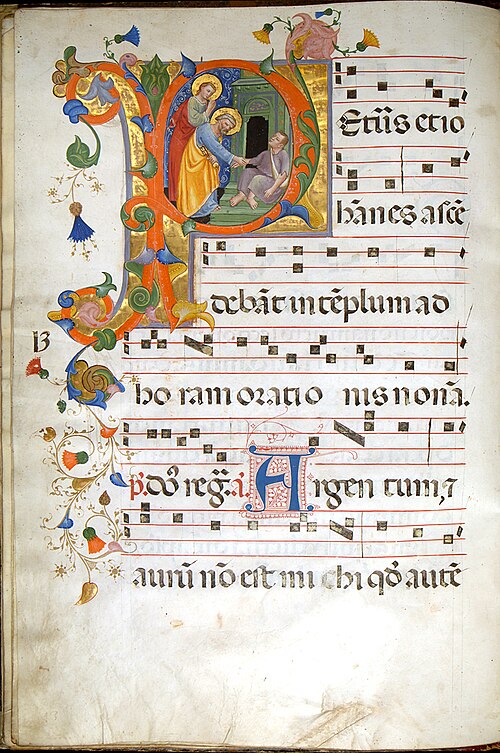 Petrus et io
hānes ascē
debāt in tēplum ad
ho ram oratio nis nonā.
p̄. dō regā. ā. Argen tum, ⁊
aurū nō est mi chi qď autē